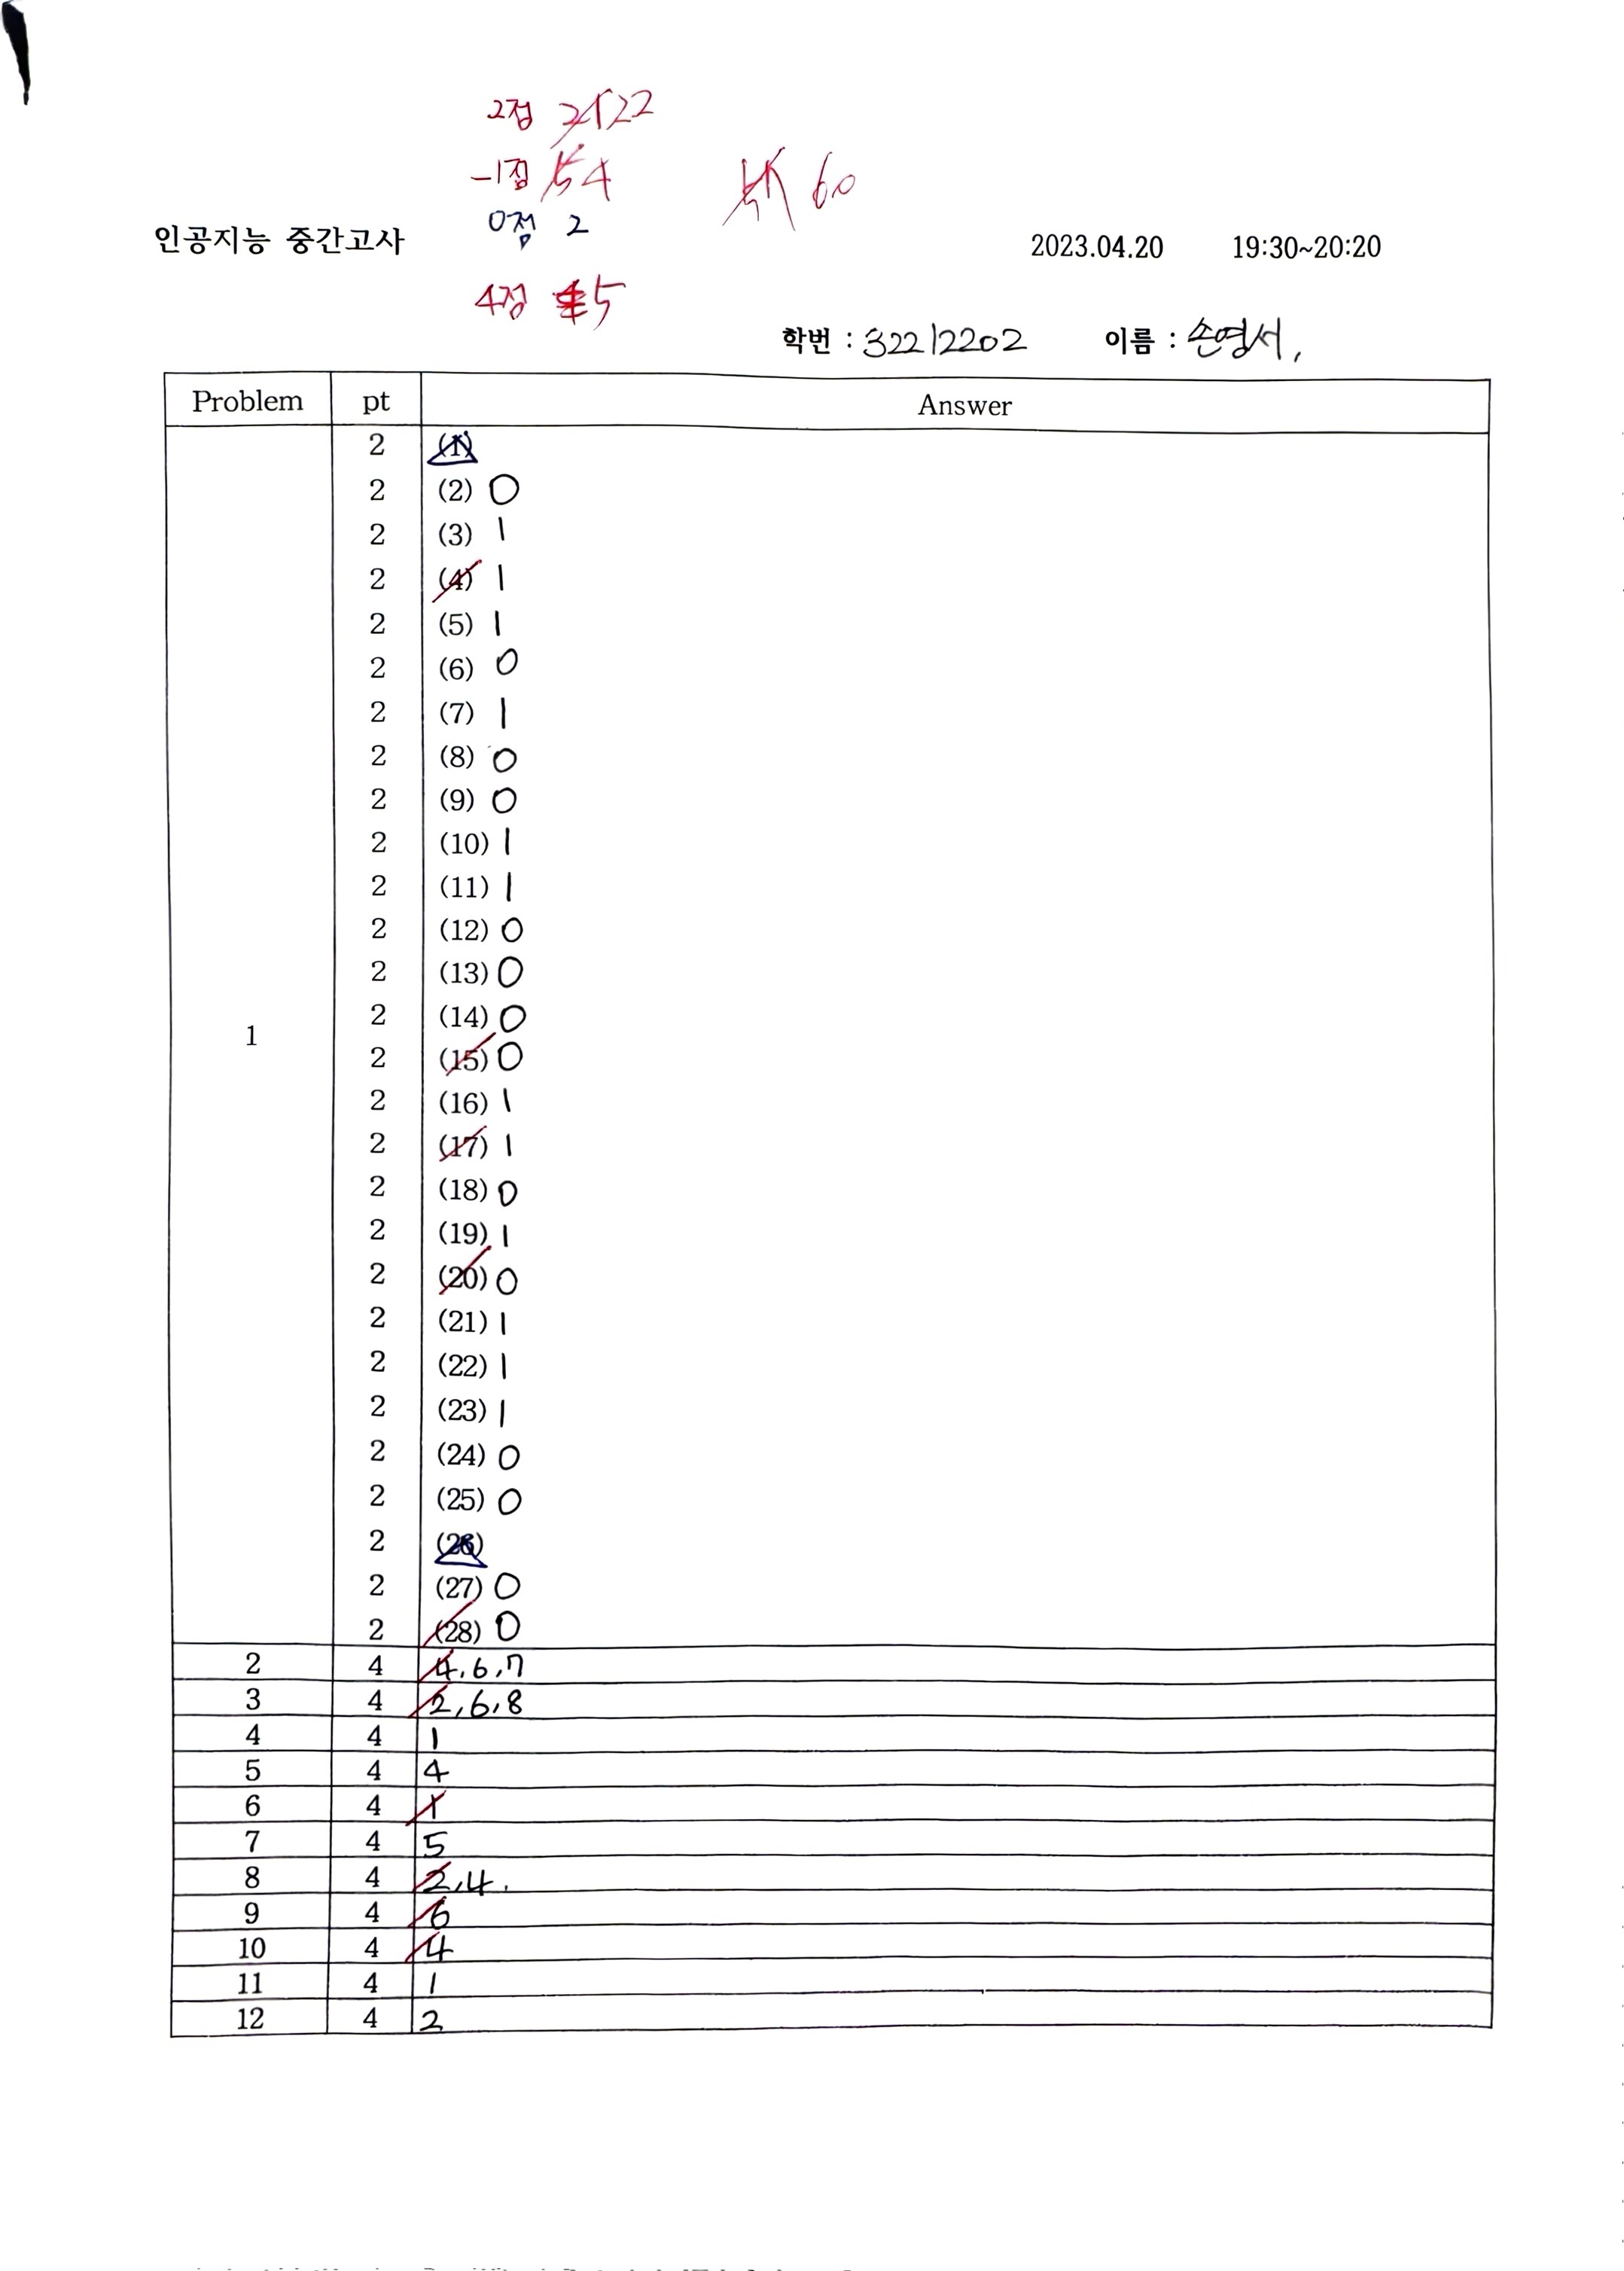 2점 22
-1점 4
60
0점 2
인공지능 중간고사
2023.04.20 19:30~20:20
4점 5
학번 : 32212202 이름 : 손영서,
Problem pt Answer
1
2 (1)
2 (2) 0
2 (3) 1
2 (4) 1
2 (5) 1
2 (6) 0
2 (7) 1
2 (8) 0
2 (9) 0
2 (10) 1
2 (11) 1
2 (12) 0
2 (13) 0
2 (14) 0
2 (15) 0
2 (16) 1
2 (17) 1
2 (18) 0
2 (19) 1
2 (20) 0
2 (21) 1
2 (22) 1
2 (23) 1
2 (24) 0
2 (25) 0
2 (26)
2 (27) 0
2 (28) 0
2 4 4,6,7
3 4 2,6,8
4 4 1
5 4 4
6 4 1
7 4 5
8 4 2,4.
9 4 6
10 4 4
11 4 1
12 4 2